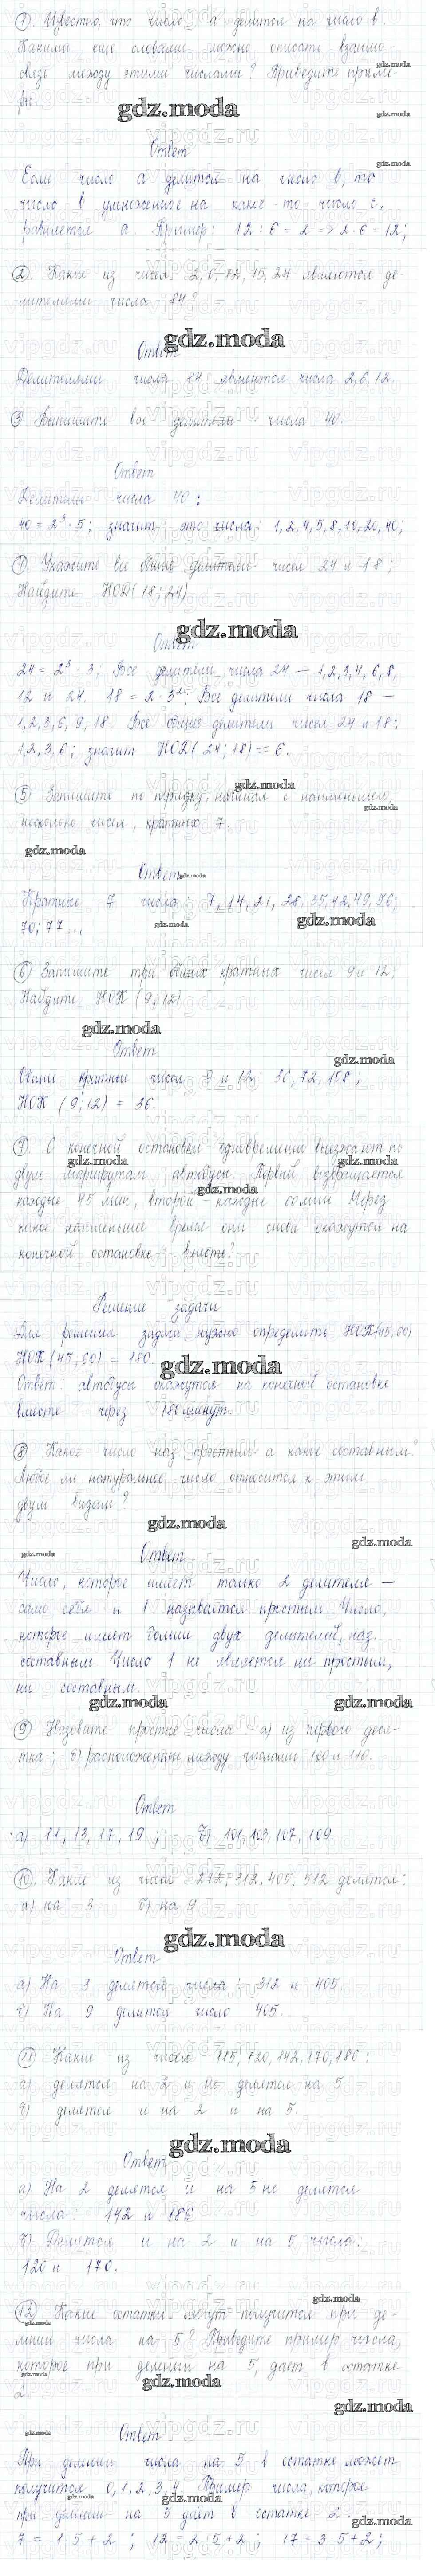 ① Известно, что число a делится на число b.
Какими еще словами можно описать взаимо-
связь между этими числами? Приведите приме-
ры.
gdz.moda
Ответ
Если число a делится на число b, то
число b умноженное на какое-то число c,
равняется a. Пример: 12 : 6 = 2 => 2 · 6 = 12;
②. Какие из чисел 2, 6, 12, 15, 24 являются де-
лителями числа 84?
gdz.moda
Ответ
Делителями числа 84 являются числа 2, 6, 12.
③ Выпишите все делители числа 40.
Ответ
Делители числа 40:
40 = 2³ · 5; значит это числа: 1, 2, 4, 5, 8, 10, 20, 40;
Укажите все общие делители чисел 24 и 18;
Найдите НОД (18; 24)
gdz.moda
Ответ
24 = 2³ · 3; Все делители числа 24 — 1, 2, 3, 4, 6, 8,
12 и 24. 18 = 2 · 3²; Все делители числа 18 —
1, 2, 3, 6, 9, 18. Все общие делители чисел 24 и 18:
1, 2, 3, 6; значит НОД (24; 18) = 6.
gdz.moda
⑤ Запишите по порядку, начиная с наименьшего,
несколько чисел, кратных 7.
gdz.moda
Ответ
Кратные 7 числа: 7, 14, 21, 28, 35, 42, 49, 56;
70; 77...
gdz.moda
⑥ Запишите три общих кратных чисел 9 и 12;
Найдите НОК (9; 12)
gdz.moda
Ответ
gdz.moda
Общие кратные чисел 9 и 12: 36, 72, 108,
НОК (9; 12) = 36.
⑦. С конечной остановки одновременно выезжают по
gdz.moda gdz.moda
двум маршрутам автобусы. Первый возвращается
gdz.moda
каждые 45 мин, второй каждые 60 мин Через
какое наименьшее время они снова окажутся на
конечной остановке вместе?
Решение задачи
Для решения задачи нужно определить НОК (45, 60)
НОК (45, 60) = 180.
gdz.moda
Ответ: автобусы окажутся на конечной остановке
вместе через 180 минут.
⑧ Какое число наз. простым а какое составным?
Любое ли натуральное число относится к этим
двум видам?
gdz.moda
gdz.moda
Ответ
Число, которое имеет только 2 делителя —
само себя и 1 называется простым. Число,
которое имеет больше двух делителей, наз.
составным Число 1 не является ни простым,
ни составным.
gdz.moda gdz.moda
⑨ Назовите простые числа: а) из первого деся-
тка; б) расположенные между числами 100 и 110.
Ответ
а) 11, 13, 17, 19; б) 101, 103, 107, 109
⑩. Какие из чисел 272, 312, 405, 512 делятся:
а) на 3 б) на 9
gdz.moda
Ответ
а) На 3 делятся числа: 312 и 405.
б) На 9 делится число 405.
⑪ Какие из чисел 115, 120, 142, 170, 186:
а) делятся на 2 и не делятся на 5
б) делятся и на 2 и на 5.
gdz.moda
Ответ
а) На 2 делятся и на 5 не делятся
числа: 142 и 186
б) Делятся и на 2 и на 5 числа:
120 и 170.
gdz.moda
⑫ Какие остатки могут получится при де-
лении числа на 5? Приведите пример числа,
которое при делении на 5, дает в остатке
2.
gdz.moda
gdz.moda
Ответ
При делении числа на 5 в остатке может
получится 0, 1, 2, 3, 4. Пример числа, которое
gdz.moda
при делении на 5 дает в остатке 2:
gdz.moda
7 = 1 · 5 + 2; 12 = 2 · 5 + 2; 17 = 3 · 5 + 2;